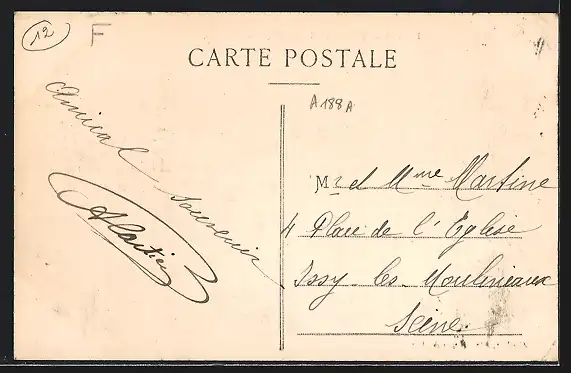 12
F
CARTE POSTALE
A188A
Amical souvenir
Mr et Mme Martine
4 Place de l'Eglise
Issy les Moulineaux
Seine